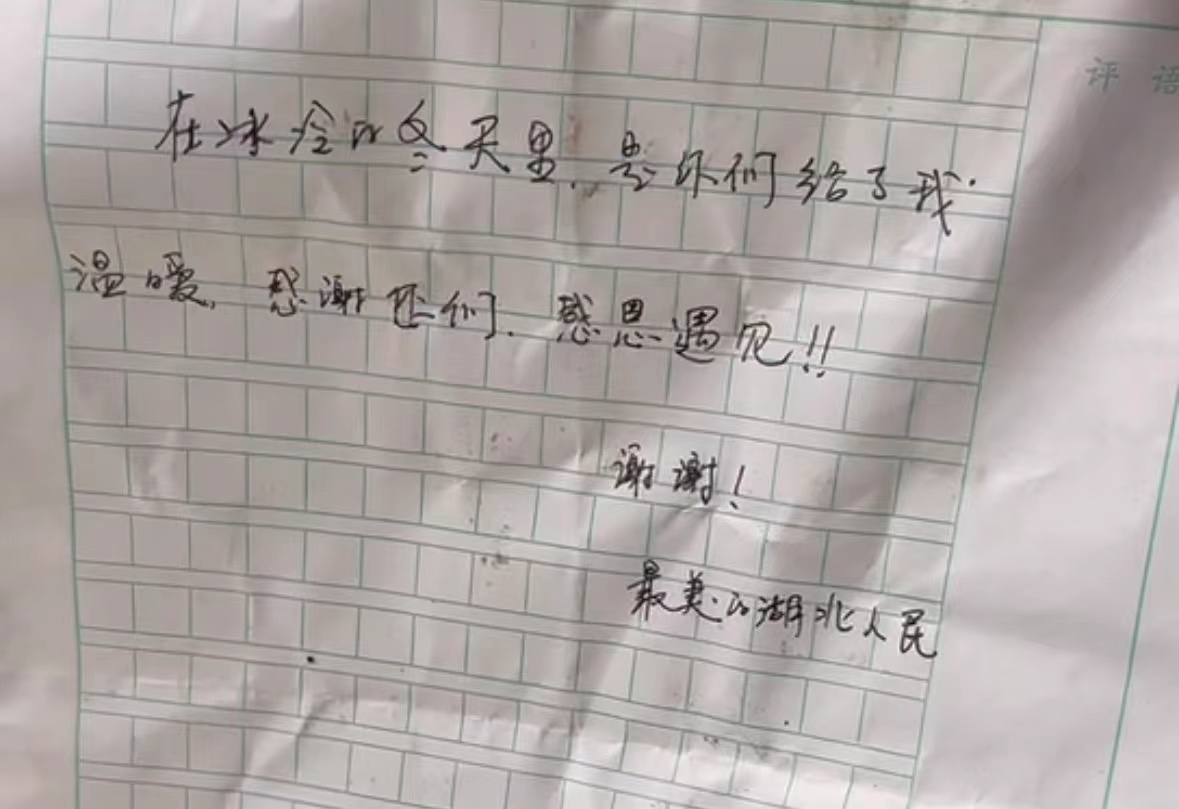 在冰冷的冬天里.是你们给了我.
温暖.感谢你们.感恩遇见!!
谢谢!
最美的湖北人民
评 语